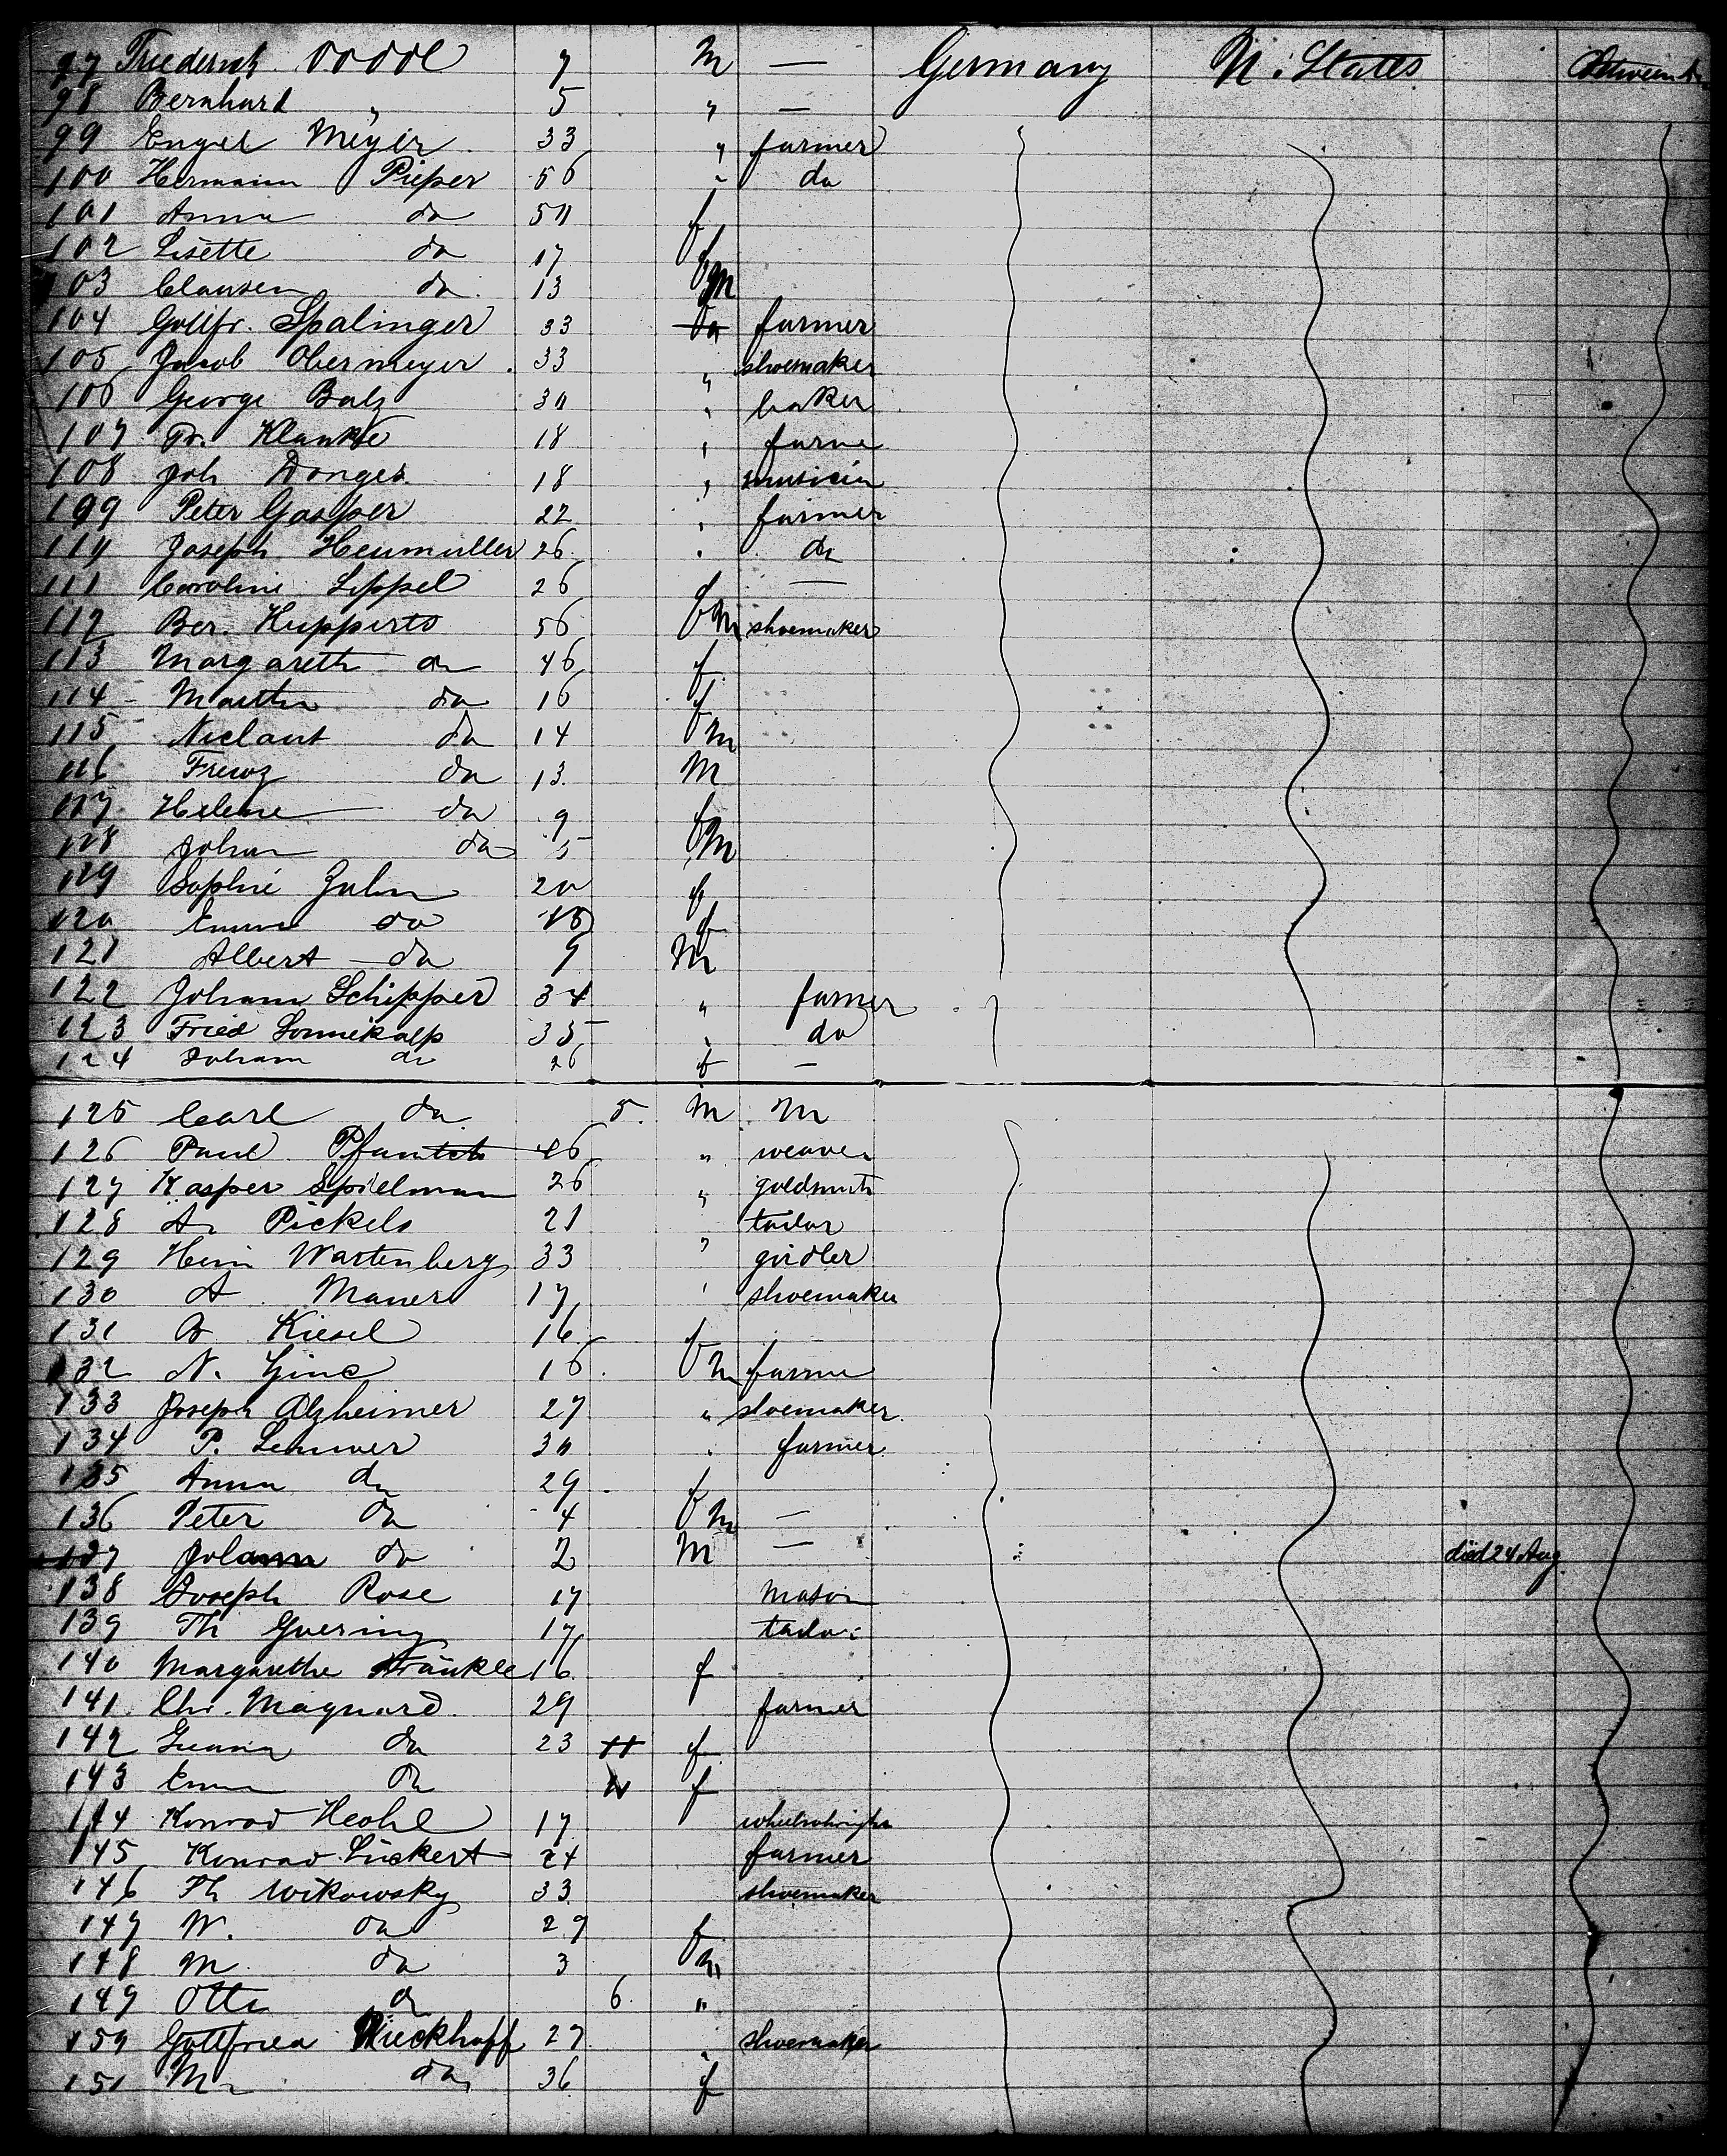 97 Friederich 7 m — Germany U. States
98 Bernhard " 5 " —
99 Engel Meyer 33 " farmer
100 Hermann Pieper 56 " do
101 Anna do 50 f
102 Lisette do 17 f
103 Clausen do 13 m
104 Gottfr. Spalinger 33 do farmer
105 Jacob Obermeyer 33 " shoemaker
106 George Balz 30 " baker
107 Fr. Klanke 18 " farme
108 Joh Donges 18 " musicin
109 Peter Gasper 22 " farmer
110 Joseph Heumuller 26 " do
111 Caroline Lippel 26 f —
112 Ber. Kupperts 56 m shoemaker
113 Margareth do 46 f
114 Martha do 16 f
115 Niclaus do 14 m
116 do 13 m
117 Helene do 9 f
118 Johan do 5 m
119 Sophie Zahn 20 f
120 Emma do f
121 Albert do 9 m
122 Johann Schipper 34 " farmer
123 Fried Sonnekalp 35 " do
124 Joham do 26 f —
125 Carl do 5. m m
126 Paul 46 " weaver
127 Kasper Spielman 26 " goldsmith
128 A Pickels 21 " tailor
129 Hein Wartenberg 33 " girdler
130 A Maner 17 " shoemaker
131 B Kiesel 16 f
132 N. 16 m farme
133 Joseph Alzheimer 27 " shoemaker
134 P. 30 " farmer
135 Anna do 29 f
136 Peter do 4 m —
137 Johann do 2 m — died 24 Aug
138 Joseph Rose 17 mason
139 Th Goering 17 tailor
140 Margarethe Fränkle 16 f
141 Chr. Magnard 29 farmer
142 do 23 f
143 Emma do f
144 Konrad 17 wheelwright
145 Konrad Lückert 24 farmer
146 Th Wikowsky 33 shoemaker
147 W. do 29 f
148 M do 3 m
149 Otto do 6. "
150 Gottfried Rieckhoff 27 " shoemaker
151 M do 36 f